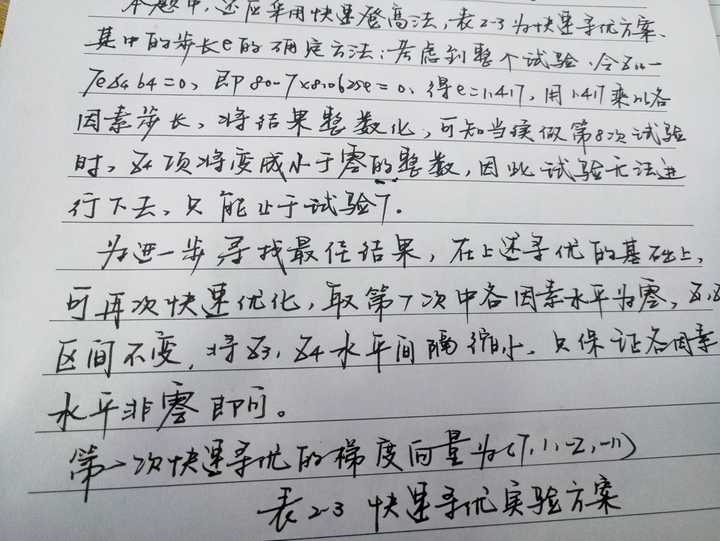 本题中,还应采用快速登高法,表2-3为快速寻优方案、
其中的步长e的确定方法:考虑到整个试验,令
7eδ4b4=0,即80-7×8.0625e=0,得e=1.417,用1.417乘以各
因素步长,将结果整数化,可知当模做第8次试验
时,δ4项将变成小于零的整数,因此试验无法进
行下去,只能止于试验7.
为进一步寻找最佳结果,在上述寻优的基础上,
可再次快速优化,取第7次中各因素水平为零,
区间不变,将δ3,δ4水平间隔缩小、只保证各因素
水平非零即可。
第一次快速寻优的梯度向量为(7,1,-2,-11)
表2-3 快速寻优实验方案